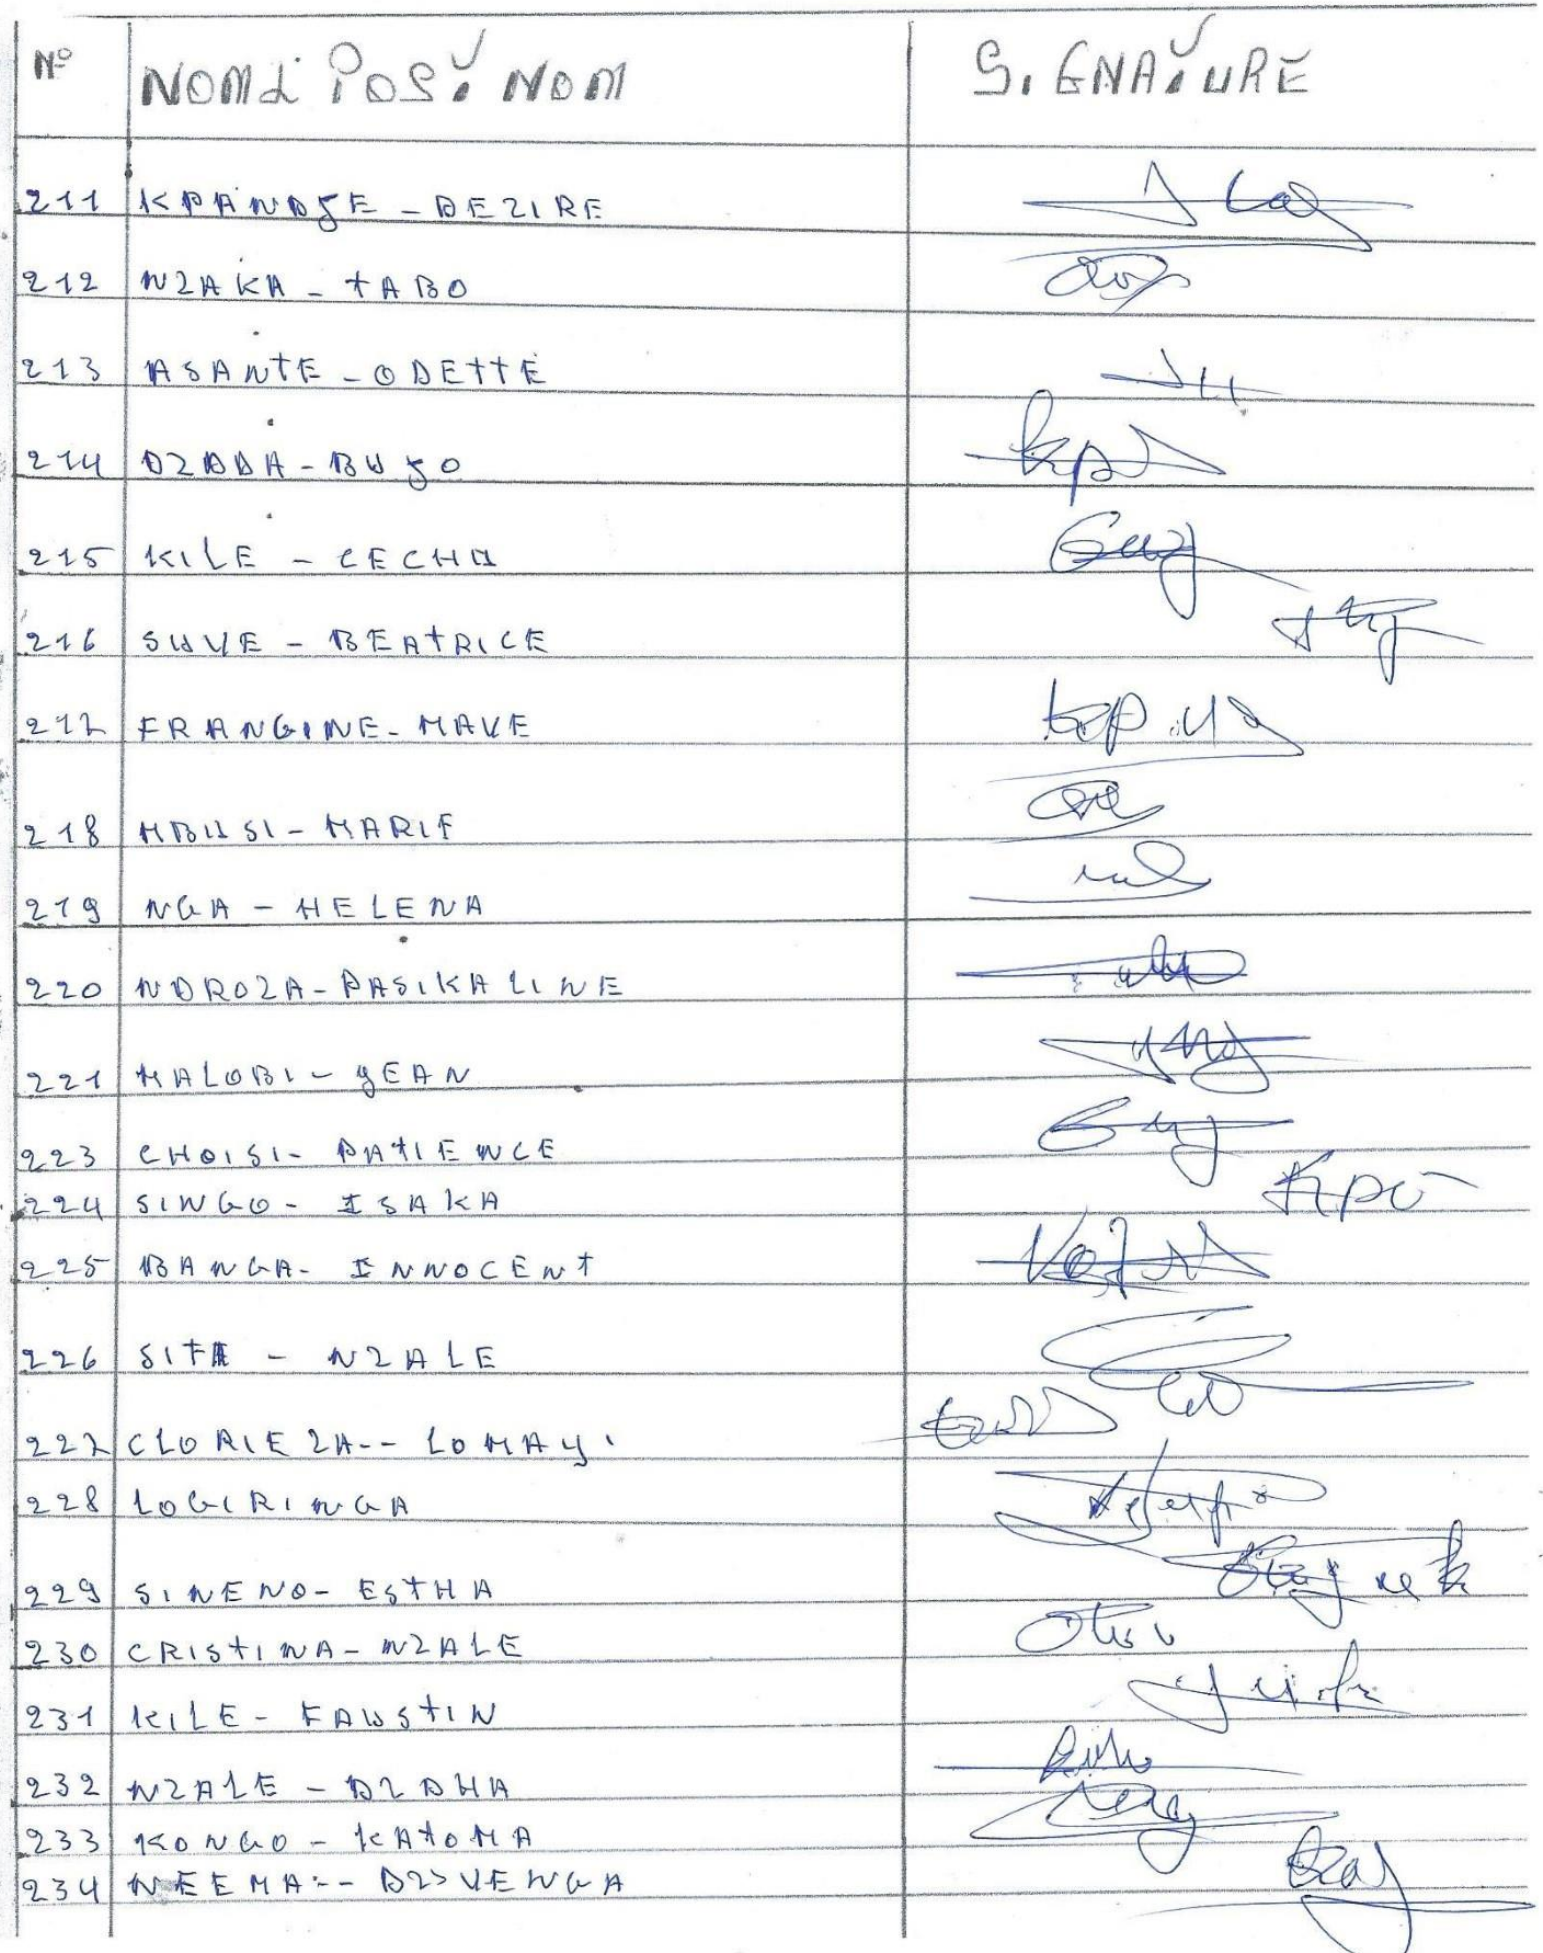 N° NOM & POST NOM SIGNATURE
211 KPANDJE - DEZIRE
212 NZAKA - TABO
213 ASANTE - ODETTE
214 DZDDA - BUJO
215 KILE - CECHA
216 SUVE - BEATRICE
217 FRANGINE - MAVE
218 MBUSI - MARIE
219 NGA - HELENA
220 NDROZA - PASIKALINE
221 MALOBI - JEAN
223 CHOISI - PATIENCE
224 SINGO - ISAKA
225 BANGA - INNOCENT
226 SITA - NZALE
227 CLORIE ZA-- LOMAY.
228 LOGIRINGA
229 SINENO - ESTHA
230 CRISTINA - NZALE
231 KILE - FAUSTIN
232 NZALE - DZDHA
233 KONGO - KATOMA
234 NEEMA --